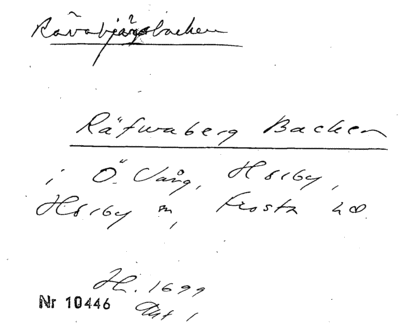 Räfwaberg Backen
i Ö. Vång, Hörby,
Hörby sn, Frosta hd.
H. 1699
Akt 1
Nr 10446